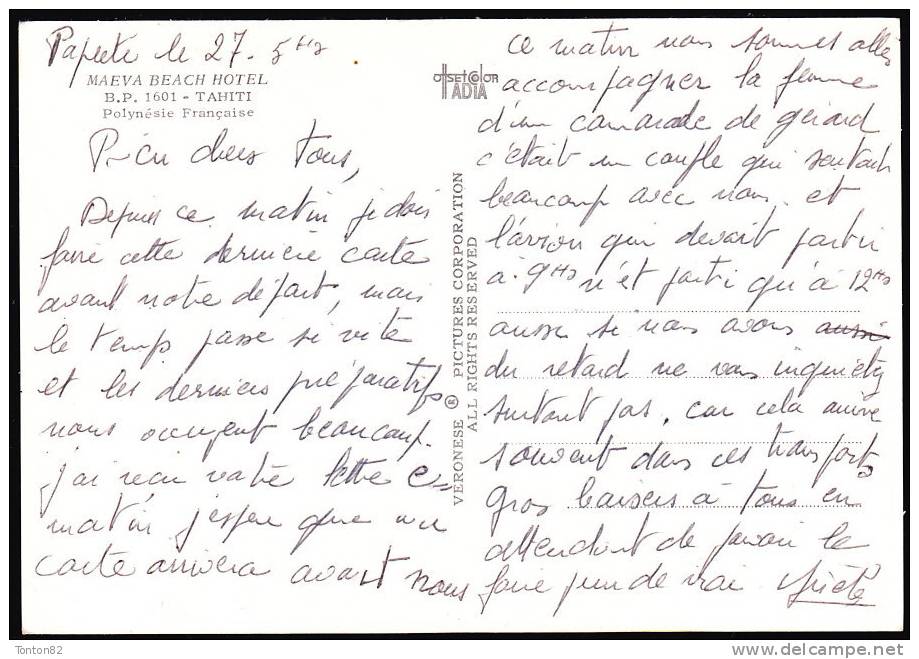 Papeete le 27. 5Hs
MAEVA BEACH HOTEL
B.P. 1601 - TAHITI
Polynésie Française
Bien chers Tous,
Depuis ce matin je dois
faire cette dernière carte
avant notre départ, mais
le temps passe si vite
et les derniers préparatifs
nous occupent beaucoup.
j'ai reçu votre lettre ce
matin j'espère que
carte arrivera avant nous
ce matin nous sommes allés
accompagner la femme
d'un camarade de gérard
c'était un couple qui sortait
beaucoup avec nous et
l'avion qui devait partir
à 9Hs n'ét parti qu'à 12Hs
aussi si nous avons aussi
du retard ne vous inquiétez
surtout pas, car cela arrive
souvent dans ces transports
gros baisers à tous en
attendant de pouvoir le
faire pour de vrai
OFFSETCOLOR
ADIA
VERONESE ® PICTURES CORPORATION
ALL RIGHTS RESERVED
Tonton82
www.delcampe.net